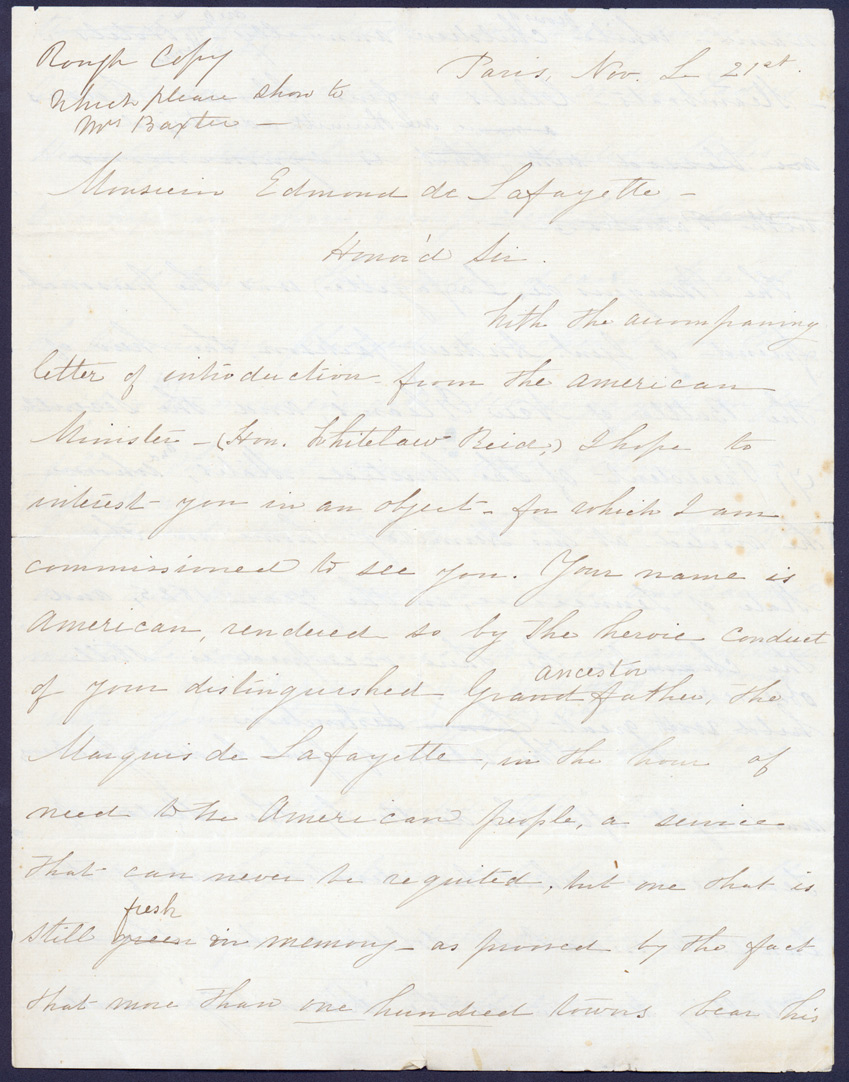 Rough Copy
Paris, Nov. 21st.
which please show to
Mrs Baxter —
Monsieur Edmond de Lafayette —
Honor'd Sir.
With the accompaning
letter of introduction from the American
Minister — (Hon. Whitelaw Reid,) I hope to
interest you in an object — for which I am
commissioned to see you. Your name is
American, rendered so by the heroic conduct
ancestor
of your distinguished Grand father, the
Marquis de Lafayette, in the hour of
need to the American people, a service
that can never be requited, but one that is
fresh
still green in memory — as prooved by the fact
that more than one hundred towns bear his